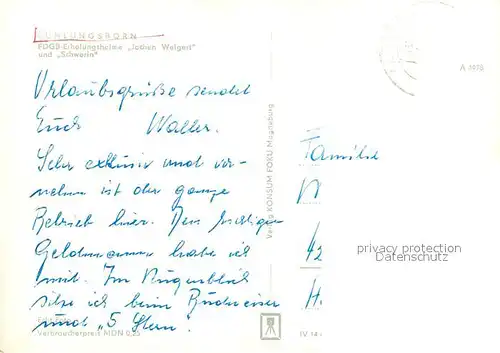 KÜHLUNGSBORN
FDGB-Erholungsheime „Jochen Weigert"
und „Schwerin"
A 1498
Urlaubsgrüße sendet
Euch Walter.
Sehr exklusiv und vor-
nehm ist der ganze
Betrieb hier. Den richtigen
habe ich
mit. Im Augenblick
sitze ich beim Budweiser
und „5 Stern".
Echt Foto
Verbraucherpreis MDN 0,25
Verlag KONSUM FOKU Magdeburg
IV 14
Familie
42
H.
privacy protection
Datenschutz